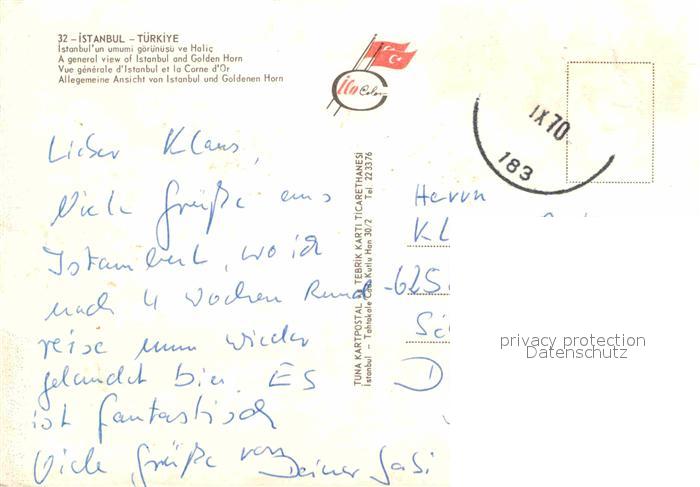 32 – İSTANBUL – TÜRKİYE
İstanbul'un umumi görünüsü ve Haliç
A general view of Istanbul and Golden Horn
Vue générale d'Istanbul et la Corne d'Or
Allegemeine Ansicht von Istanbul und Goldenen Horn
Color
IX 70
183
Lieber Klaus,
Viele Grüße aus
Istambul, wo ich
nach 4 Wochen Rund-
reise nun wieder
gelandet bin. Es
ist fantastisch
Viele Grüße von
Deiner Gabi
TUNA KARTPOSTAL VE TEBRİK KARTI TİCARETHANESİ
İstanbul – Tahtakale Cad. Kutlu Han 30/2 Tel. 22 33 76
Herrn
Kl
625
D
privacy protection
Datenschutz